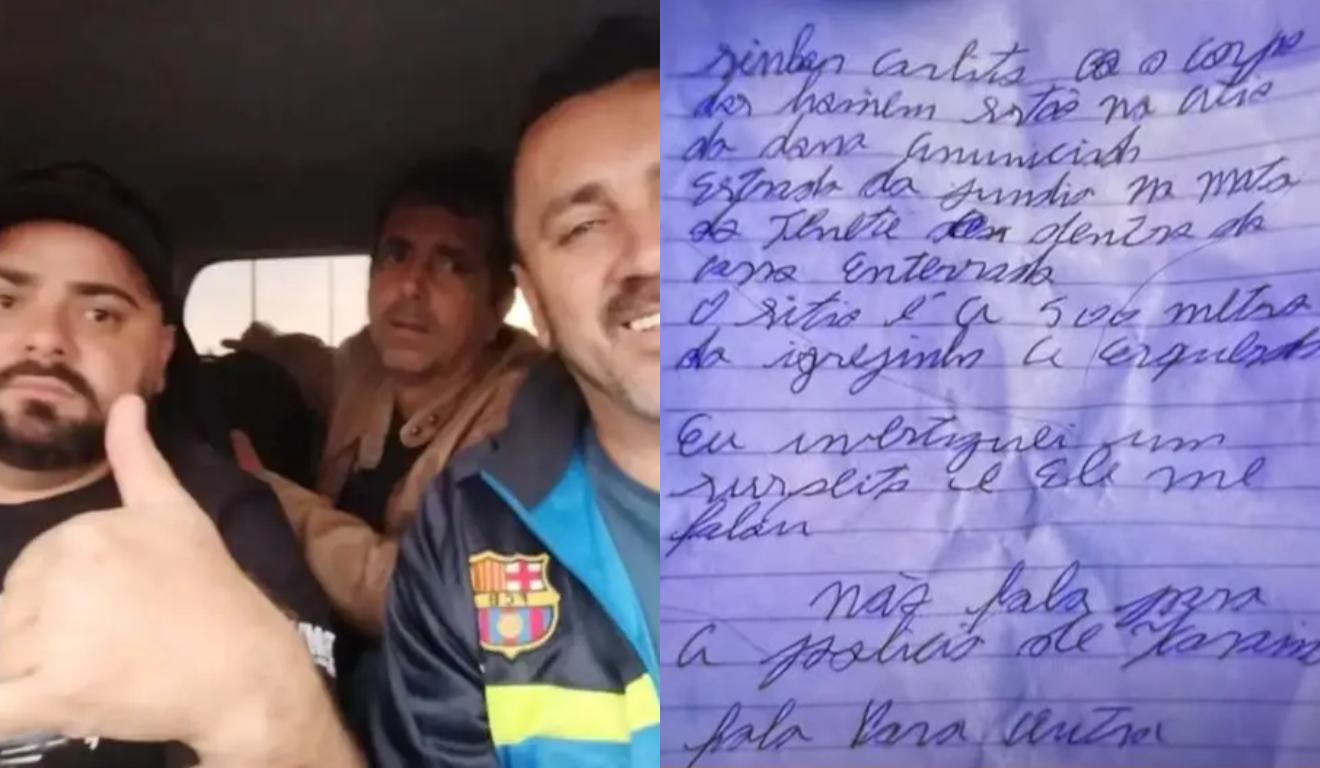 senhor Carlito os o corpo
dos homem estão no citio
do dono anunciado
Estrada da jundia na mata
do Tenete dentro da
casa enterrado
O sitio é a 500 metro
da igrejinha a esquerda
Eu investiguei um
surpeito e ele me
falou
não fala para
a policia de
fala para outra